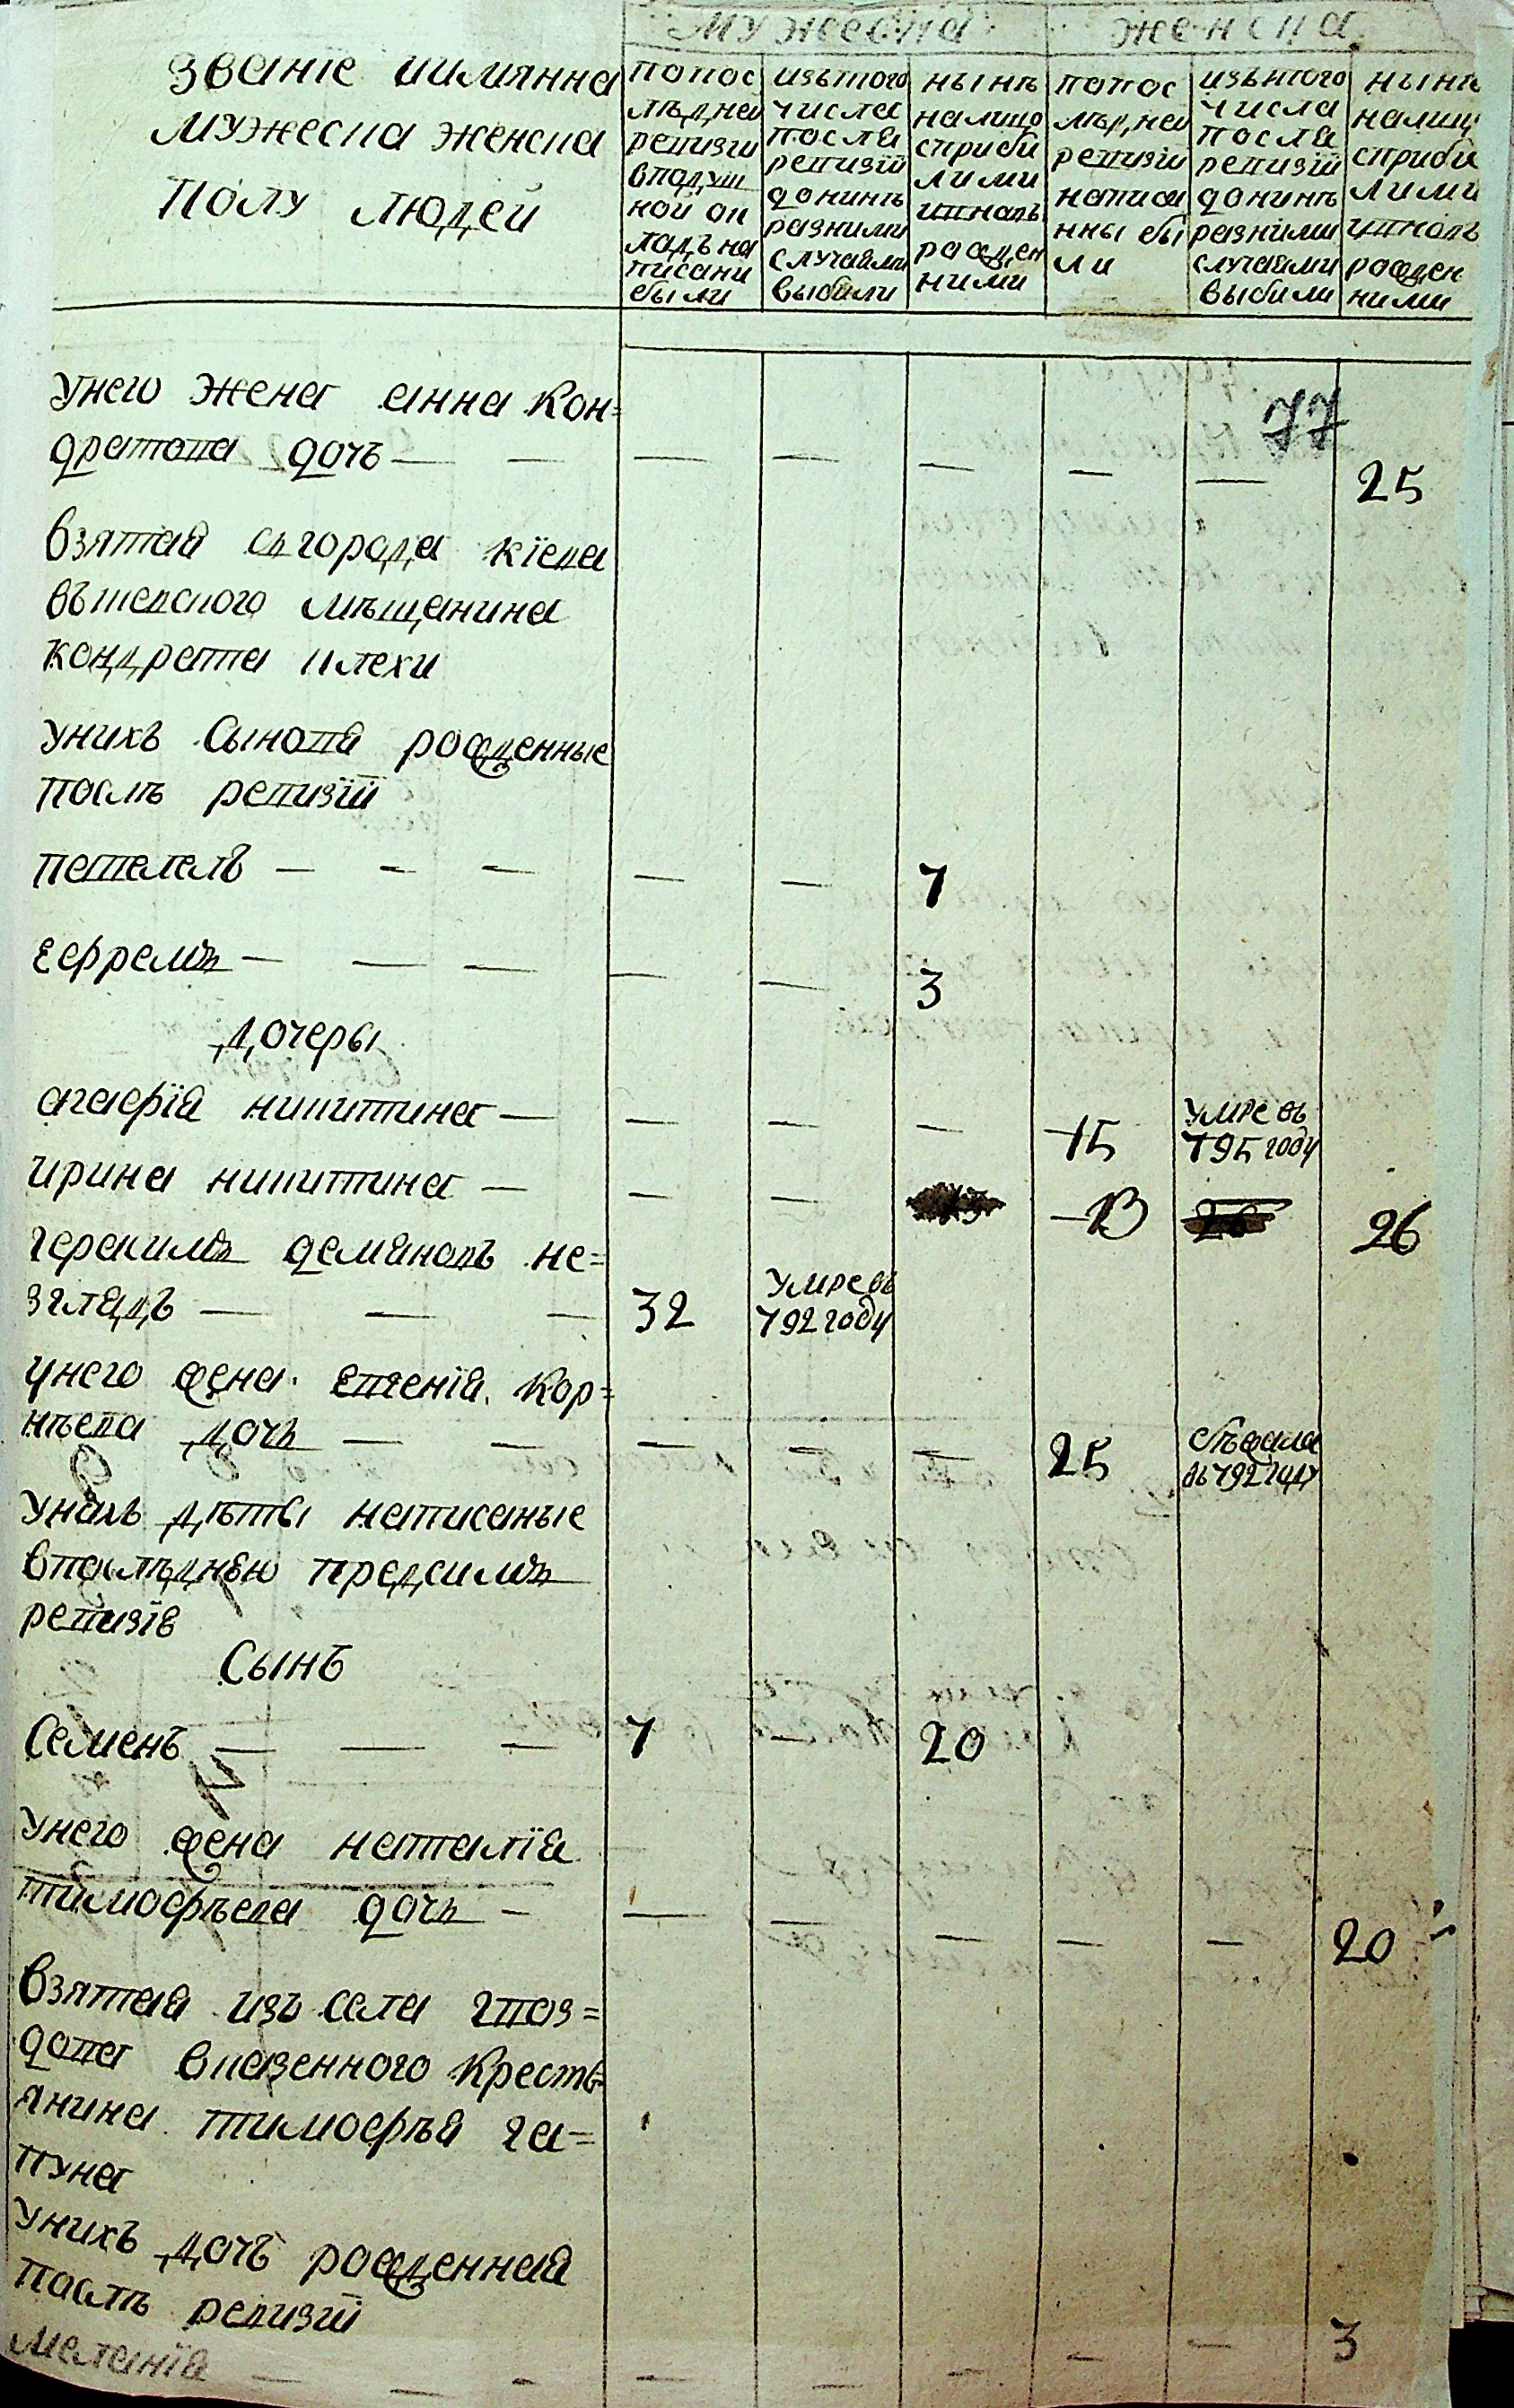 мужеска женска
званїе иимянна
мужеска женска
полу людей
попос
лѣдней
ревизїи
вподуш
ной ок
ладъ на
писани
были
изътого
числа
посля
ревизїи
донинѣ
разними
случайми
выбили
нынѣ
налицо
сприби
лими
ивновь
рожден
ними
попос
лѣдней
ревизїи
написа
нны бы
ли
изътого
числа
посля
ревизїй
донинѣ
разними
случайми
выбили
нынѣ
налиц
сприби
лими
ивновь
рожден
ними
77
унего жена анна кон=
дратова дочъ — — — — — — — 25
взятая сгорода кїева
въшевского мѣщанина
кондрата плехи
унихъ сынови рожденные
послѣ ревизїй
павелъ — — — — — 7
ефремъ — — — — — 3
дочеры
агафїя никитина — — — — 15 умре въ
795 году
ирина никитина — — — 13 26
герасимъ демяновъ не=
згляд — — — 32 умре въ
792 году
унего жена евгенїя кор=
нѣева дочь — — — — — 25 сбѣжала
въ 792 году
унихъ дѣты написаные
впослѣднею предсимъ
ревизїю
сынъ
семенъ — — — 7 — 20
унего жена наталїя
тимофѣева дочь — — — — — — 20
взятая изъ села гвоз=
дова вказенного кресть
янина тимофѣя га=
пуна
унихъ дочъ рожденная
послѣ ревизїй
меланїя — — — — — — — — 3